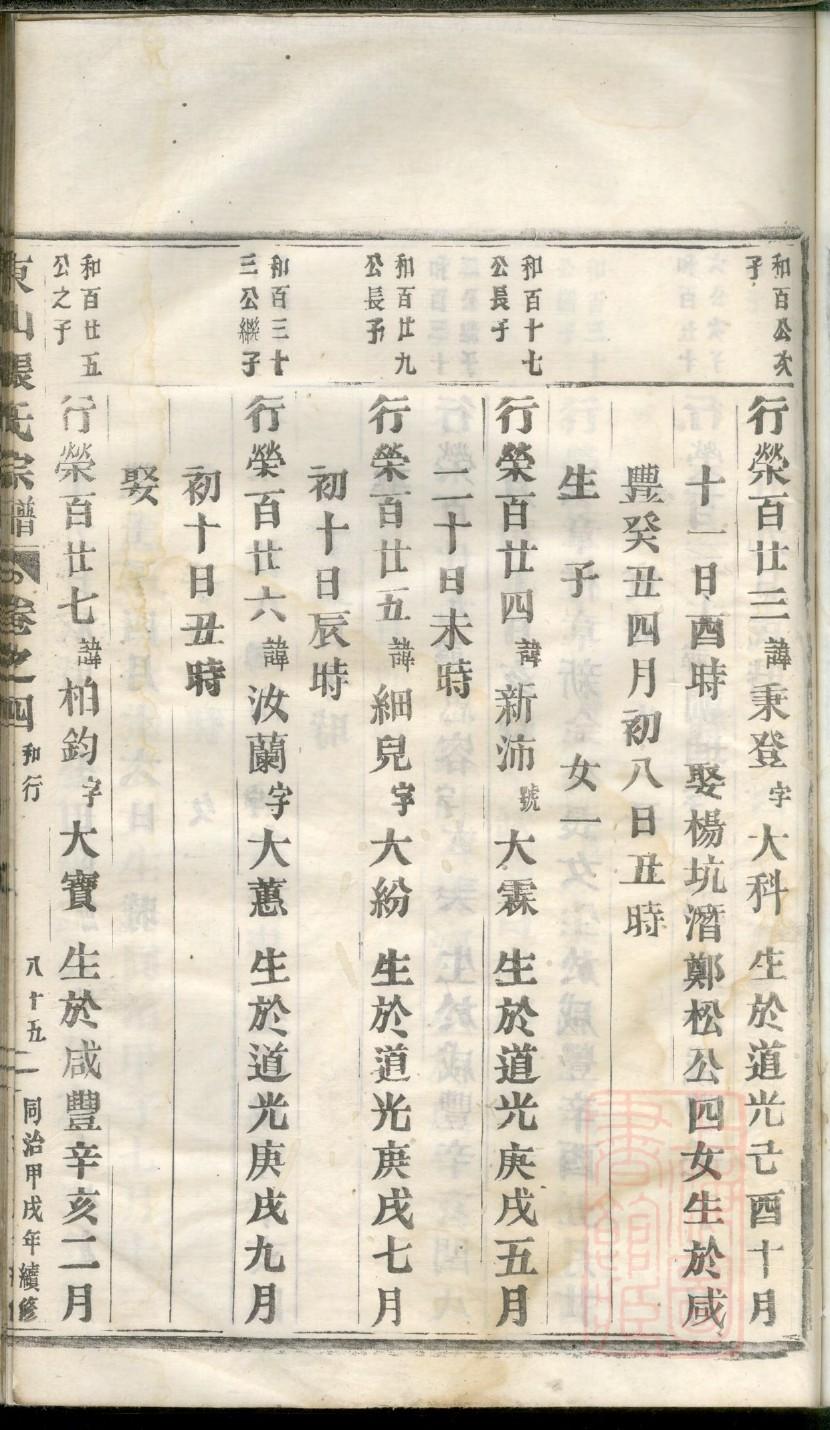 和百公次
子
行榮百廿三諱秉登字大科 生於道光己酉十月
十一日酉時 娶楊坑潛鄭松公四女生於咸
豐癸丑四月初八日丑時
生子 女一
和百十七
公長子
行榮百廿四諱新沛號大霖 生於道光庚戌五月
二十日未時
和百廿九
公長子
行榮百廿五諱細兒字大紛 生於道光庚戌七月
初十日辰時
和百三十
三公繼子
行榮百廿六諱汝蘭字大蕙 生於道光庚戌九月
初十日丑時
娶
和百廿五
公之子
行榮百廿七諱柏鈞字大寶 生於咸豐辛亥二月
東山張氏宗譜 卷之四 和行 八十五 同治甲戌年續修